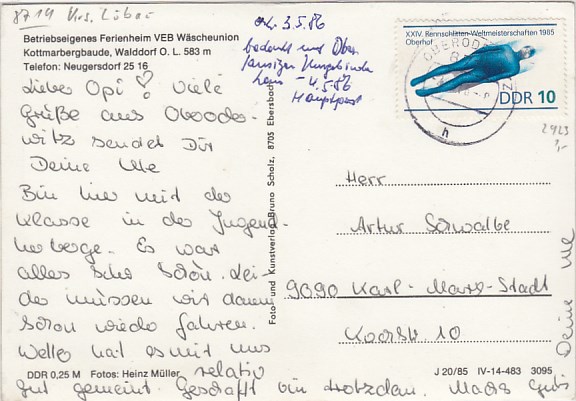 8719 Krs. Löbau
Betriebseigenes Ferienheim VEB Wäscheunion
Kottmarbergbaude, Walddorf O. L. 583 m
Telefon: Neugersdorf 25 16
3.5.86
bedeutet
4.5.86
Hauptpost
XXIV. Rennschlitten-Weltmeisterschaften 1985
Oberhof
DDR 10
OBERODERWITZ
h
2923
Lieber Opi! Viele
Grüße aus Oberoder-
witz sendet Dir
Deine Ute
Bin hier mit der
Klasse in der Jugend-
herberge. Es war
alles sehr schön. Lei-
der müssen wir dann
schon wieder fahren.
Wetter hat es mit uns
relativ
gut gemeint. Geschafft bin trotzdem. Machs gut
Deine Ute
Foto und Kunstverlag Bruno Scholz, 8705 Ebersbach
Herr
Artur Schwalbe
9090 Karl-Marx-Stadt
Kochstr. 10
DDR 0,25 M Fotos: Heinz Müller
J 20/85 IV-14-483 3095